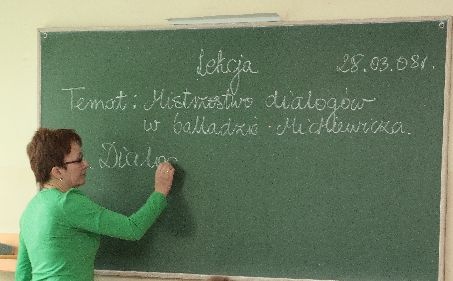 Lekcja 28.03.08r.
Temat: Mistrzostwo dialogów
w balladzie Mickiewicza.
Dialog